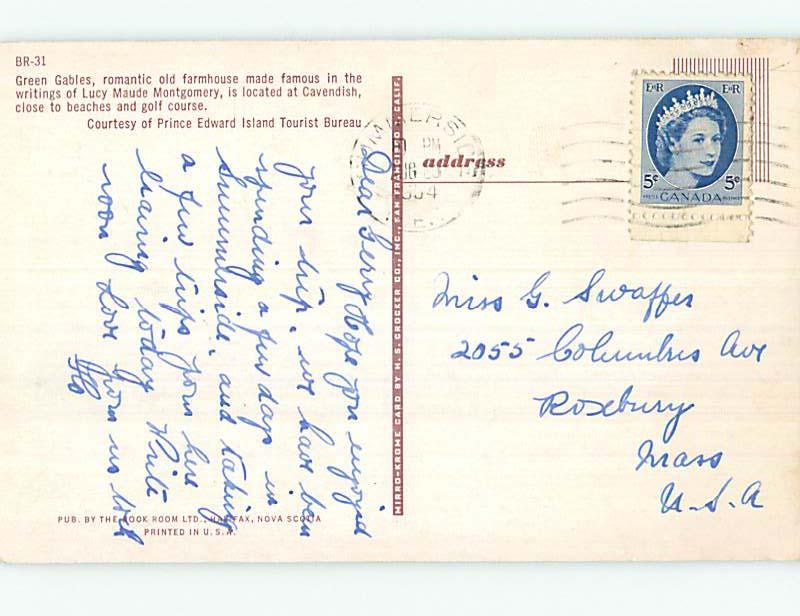 BR-31
Green Gables, romantic old farmhouse made famous in the
writings of Lucy Maude Montgomery, is located at Cavendish,
close to beaches and golf course.
Courtesy of Prince Edward Island Tourist Bureau
Dear Gerry Hope you enjoyed
your trip. we have been
spending a few days in
Summerside. and taking
a few trips from here
leaving today Write
soon Love from us both
Flo
PUB. BY THE BOOK ROOM LTD., HALIFAX, NOVA SCOTIA
PRINTED IN U.S.A.
MIRRO-KROME CARD BY H. S. CROCKER CO., INC., SAN FRANCISCO 1, CALIF.
address
SUMMERSIDE
PM
1954
P.E.I.
E II R E II R
5¢ 5¢
POSTES CANADA POSTAGE
Miss G. Swaffer
2055 Columbus Ave
Roxbury
Mass
U.S.A